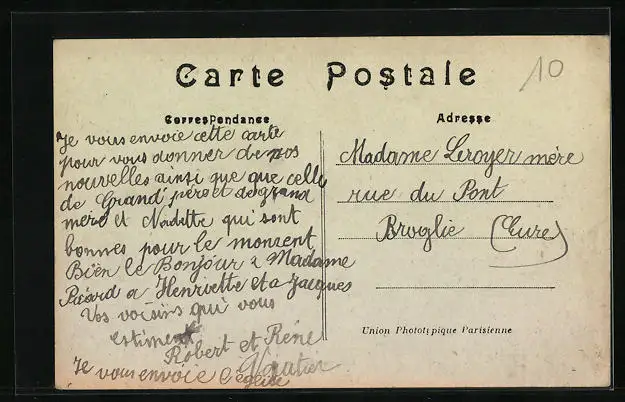 Carte Postale
10
Correspondance
Adresse
Je vous envoie cette carte
pour vous donner de nos
nouvelles ainsi que que celle
de Grand père et de grand
mère et Nadette qui sont
bonnes pour le moment
Bien le Bonjour a Madame
Picard a Henriette et a Jacques
Vos voisins qui vous
estiment
Robert et Réné
Vautier
Je vous envoie l'église
Madame Leroyer mère
rue du Pont
Broglie (Eure)
Union Phototypique Parisienne